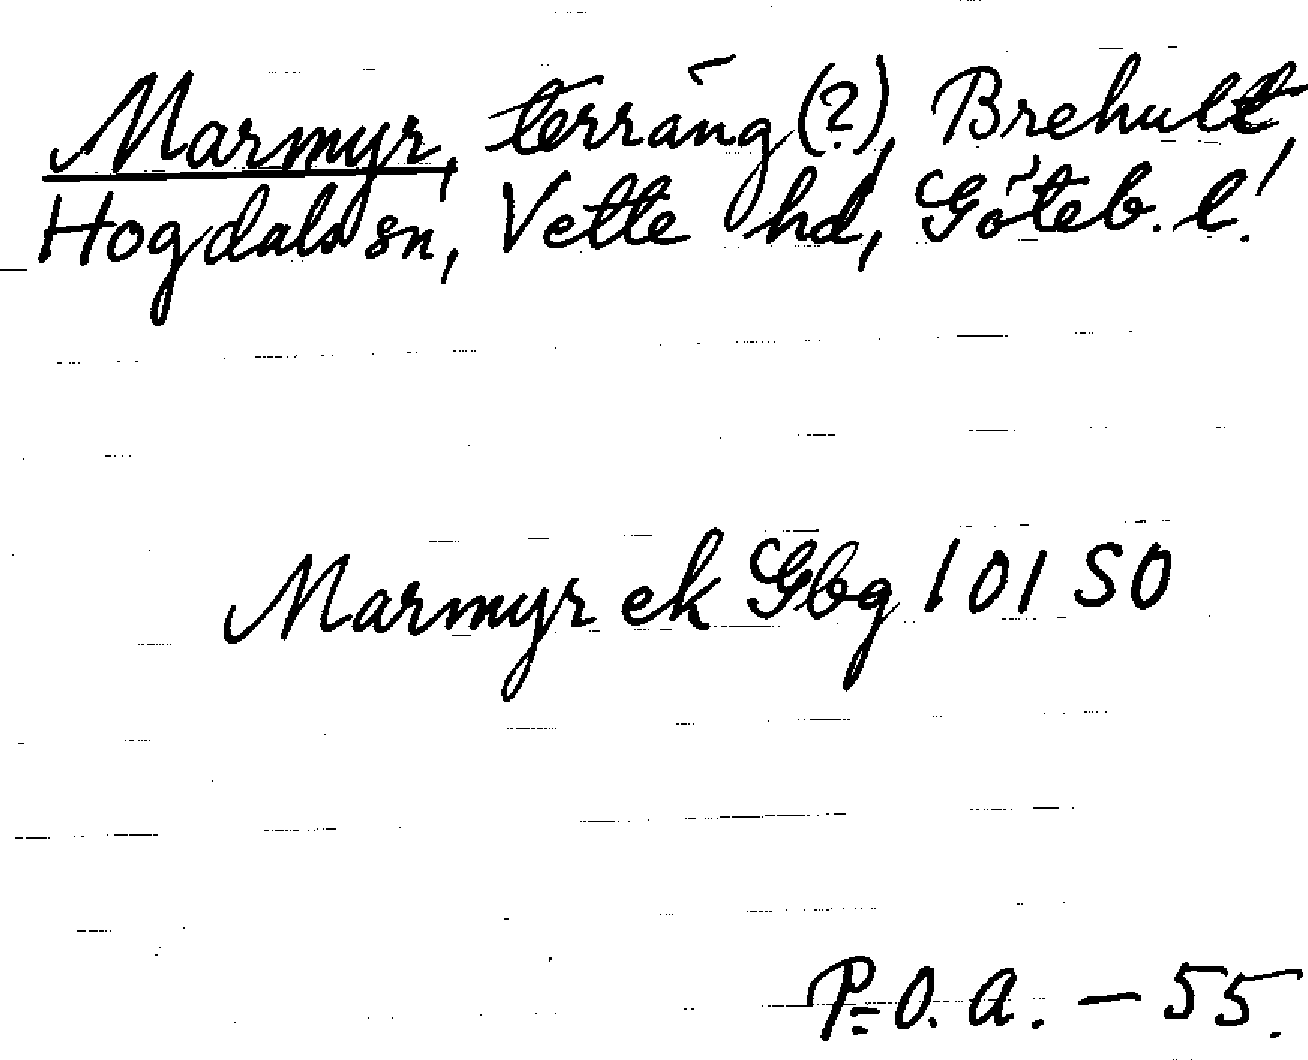 Marmyr, terräng (?), Brehult,
Hogdals sn, Vette hd, Göteb. l.
Marmyr ek Gbg 101 SO
P.O.A. - 55.